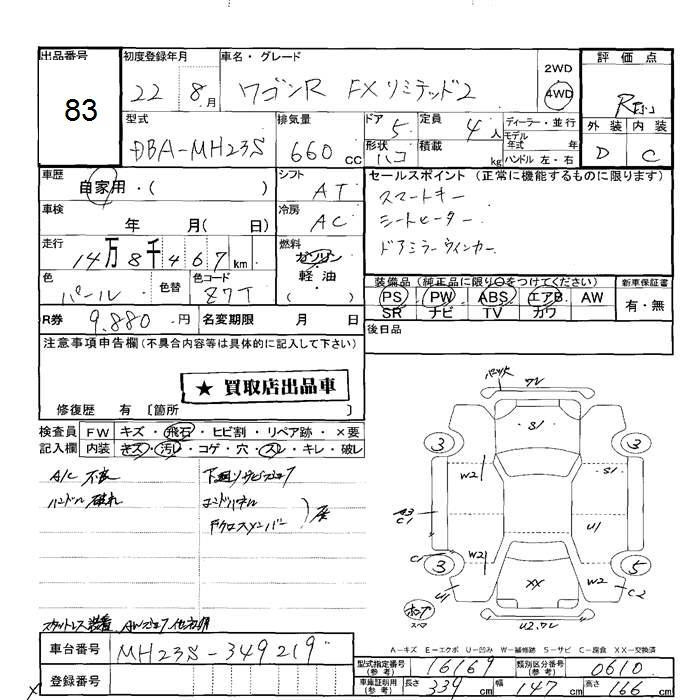 出品番号
83
初度登録年月
22年 8月
車名・グレード
ワゴンR FXリミテッド2
2WD
4WD
評価点
R
外装 内装
D C
型式
DBA-MH23S
排気量
660 cc
ドア 5
形状 ハコ
定員 4人
積載 kg
ディーラー・並行
モデル年式 年
ハンドル 左・右
車歴
自家用・( )
シフト
AT
車検
年 月( 日)
冷房
AC
走行
14万8千467km
燃料
ガソリン
軽油
( )
色
パール
色替
色コード
Z7T
R券 9,880円
名変期限 月 日
セールスポイント (正常に機能するものに限ります)
スマートキー
シートヒーター
ドアミラーウィンカー
装備品 (純正品に限り○をつけてください)
PS PW ABS エアB AW
SR ナビ TV カワ
新車保証書
有・無
後日品
注意事項申告欄(不具合内容等は具体的に記入して下さい)
★ 買取店出品車
修復歴 有 〔箇所 〕
検査員記入欄
FW キズ・飛石・ヒビ割・リペア跡・×要
内装 キズ・汚レ・コゲ・穴・スレ・キレ・破レ
A/C 不良
ハンドル 破れ
下廻りサビ
エンドパネル
Fクロスメンバー
スタットレス装着
バンパ ワレ
S1
3 3
W2 S1
A3
C1
U1
W2
3 5
U1 XX W2 C2
U2.ワレ
A-キズ E-エクボ U-凹み W-補修跡 S-サビ C-腐食 XX-交換済
車台番号 MH23S-349219
登録番号
型式指定番号(参考) 16169
類別区分番号(参考) 0610
車庫証明用(参考) 長さ 339cm 幅 147cm 高さ 166cm